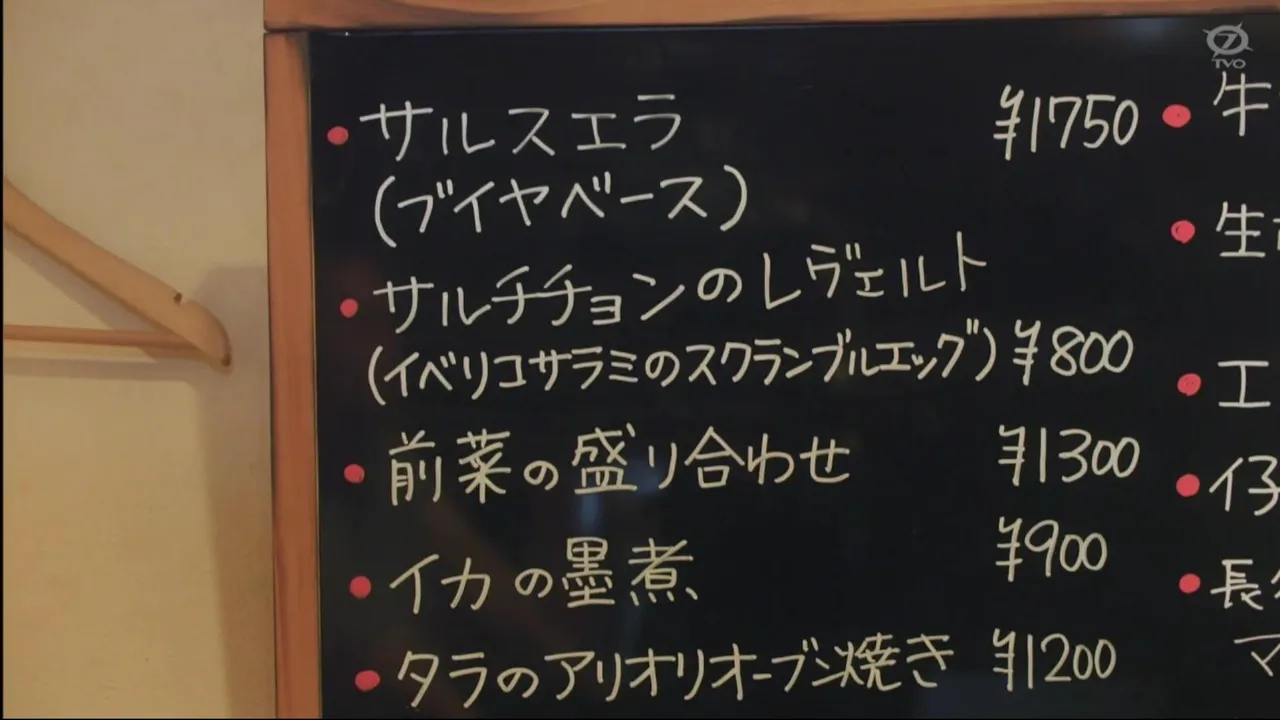 サルスエラ ¥1750
(ブイヤベース)
サルチチョンのレヴェルト
(イベリコサラミのスクランブルエッグ) ¥800
前菜の盛り合わせ ¥1300
イカの墨煮 ¥900
タラのアリオリオーブン焼き ¥1200
牛
生
エ
仔
長
マ
7
TVO